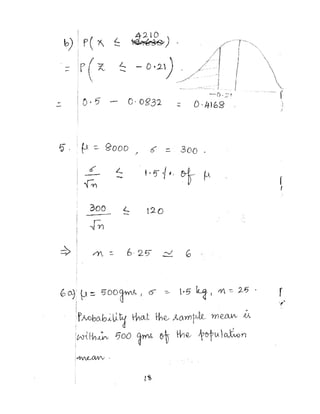 4210
b) P(X ≤ ) .
= P(Z ≤ - 0.21)
-0.21
= 0.5 - 0.0832 = 0.4168
5. μ = 8000 , σ = 300 .
σ/√n ≤ 1.5 /. of μ
300/√n ≤ 120
⇒ n = 6.25 ≃ 6 .
6a) μ = 500gms , σ = 1.5 kg, n = 25 .
Probability that the sample mean is
within 500 gms of the population
mean .
18